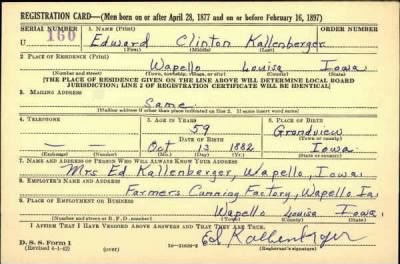 REGISTRATION CARD—(Men born on or after April 28, 1877 and on or before February 16, 1897)
SERIAL NUMBER 1. NAME (Print) ORDER NUMBER
U 160 Edward Clinton Kallenberger
(First) (Middle) (Last)
2. PLACE OF RESIDENCE (Print)
Wapello Louisa Iowa
(Number and street) (Town, township, village, or city) (County) (State)
[THE PLACE OF RESIDENCE GIVEN ON THE LINE ABOVE WILL DETERMINE LOCAL BOARD
JURISDICTION; LINE 2 OF REGISTRATION CERTIFICATE WILL BE IDENTICAL]
3. MAILING ADDRESS
Same
[Mailing address if other than place indicated on line 2. If same insert word same]
4. TELEPHONE 5. AGE IN YEARS 6. PLACE OF BIRTH
59 Grandview
DATE OF BIRTH (Town or county)
— — Oct 13 1882 Iowa
(Exchange) (Number) (Mo.) (Day) (Yr.) (State or country)
7. NAME AND ADDRESS OF PERSON WHO WILL ALWAYS KNOW YOUR ADDRESS
Mrs Ed Kallenberger, Wapello, Iowa
8. EMPLOYER'S NAME AND ADDRESS
Farmers Cunning Factory, Wapello Ia
9. PLACE OF EMPLOYMENT OR BUSINESS
Wapello Louisa Iowa
(Number and street or R. F. D. number) (Town) (County) (State)
I AFFIRM THAT I HAVE VERIFIED ABOVE ANSWERS AND THAT THEY ARE TRUE.
D. S. S. Form 1
(Revised 4-1-42) (over) Ed Kallenberger
(Registrant's signature)